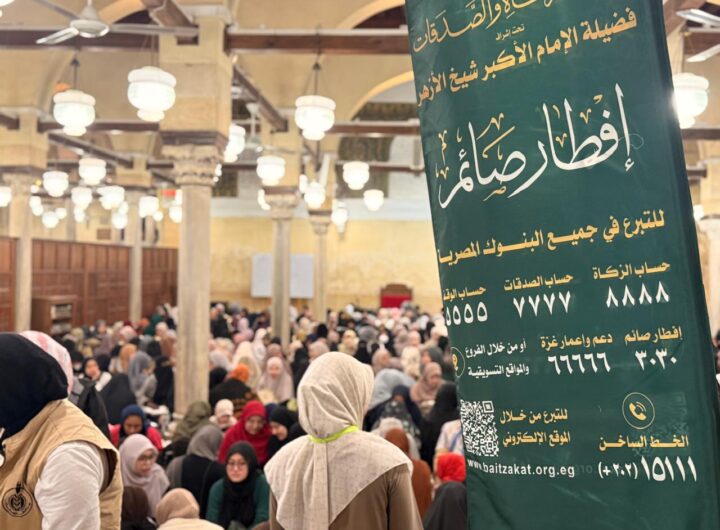 والصدقات
تحت إشراف
فضيلة الإمام الأكبر شيخ الأزهر
إفطار صائم
للتبرع في جميع البنوك المصرية
حساب الزكاة
٨٨٨٨
حساب الصدقات
٧٧٧٧
حساب الوقف
٥٥٥٥
إفطار صائم
٣٠٣٠
دعم وإعمار غزة
٦٦٦٦٦
أو من خلال الفروع
والمواقع التسويقية
للتبرع من خلال
الموقع الإلكتروني
www.baitzakat.org.eg
الخط الساخن
(+٢٠٢) ١٥١١١